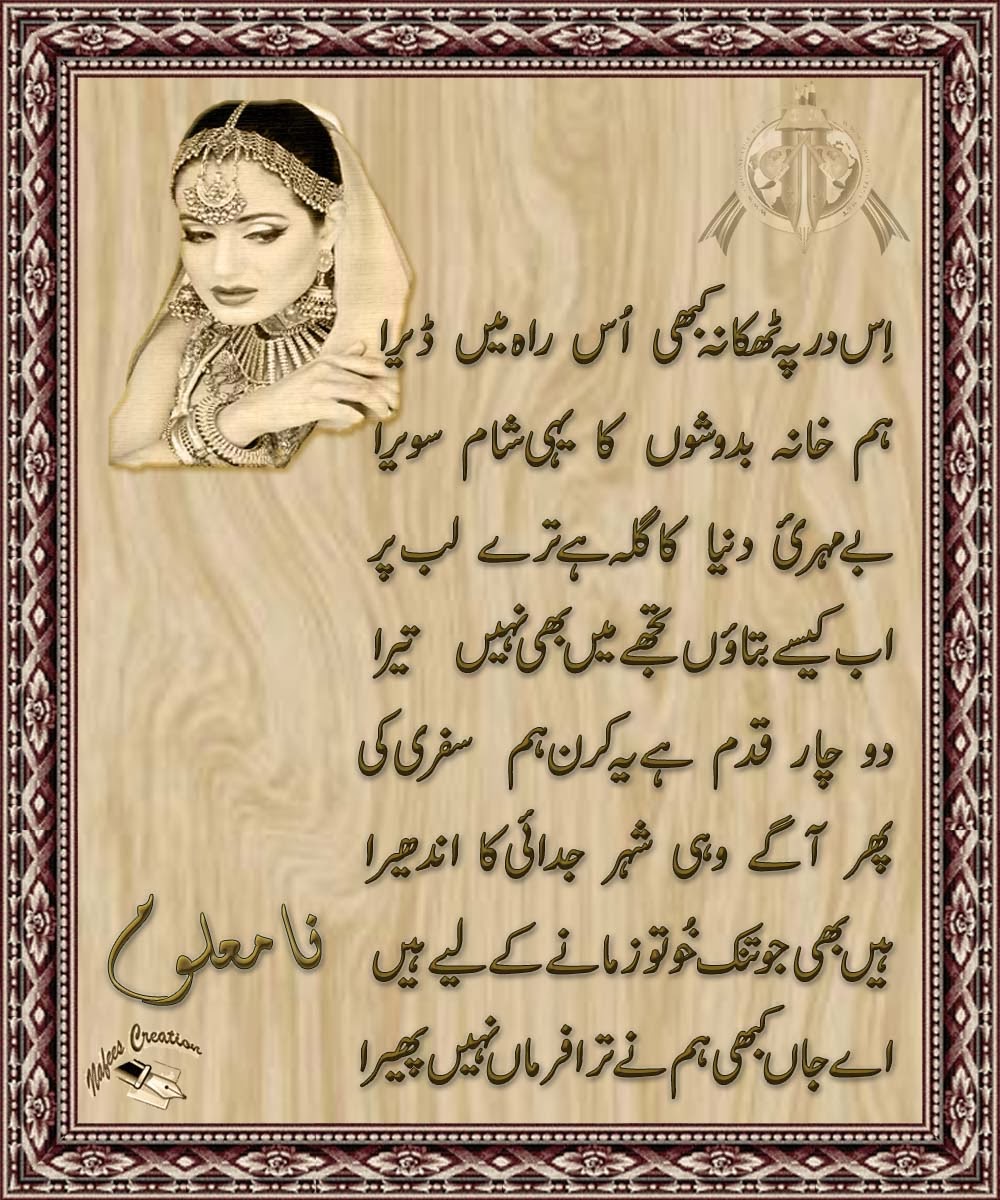 اِس در پہ ٹھکانہ کبھی اُس راہ میں ڈیرا
ہم خانہ بدوشوں کا یہی شام سویرا
بے مہریٔ دنیا کا گلہ ہے ترے لب پر
اب کیسے بتاؤں تجھے میں بھی نہیں تیرا
دو چار قدم ہے یہ کرن ہم سفری کی
پھر آگے وہی شہر جدائی کا اندھیرا
ہیں بھی جو تنک خُو تو زمانے کے لیے ہیں
اے جاں کبھی ہم نے ترا فرماں نہیں پھیرا
نامعلوم
Nafees Creation